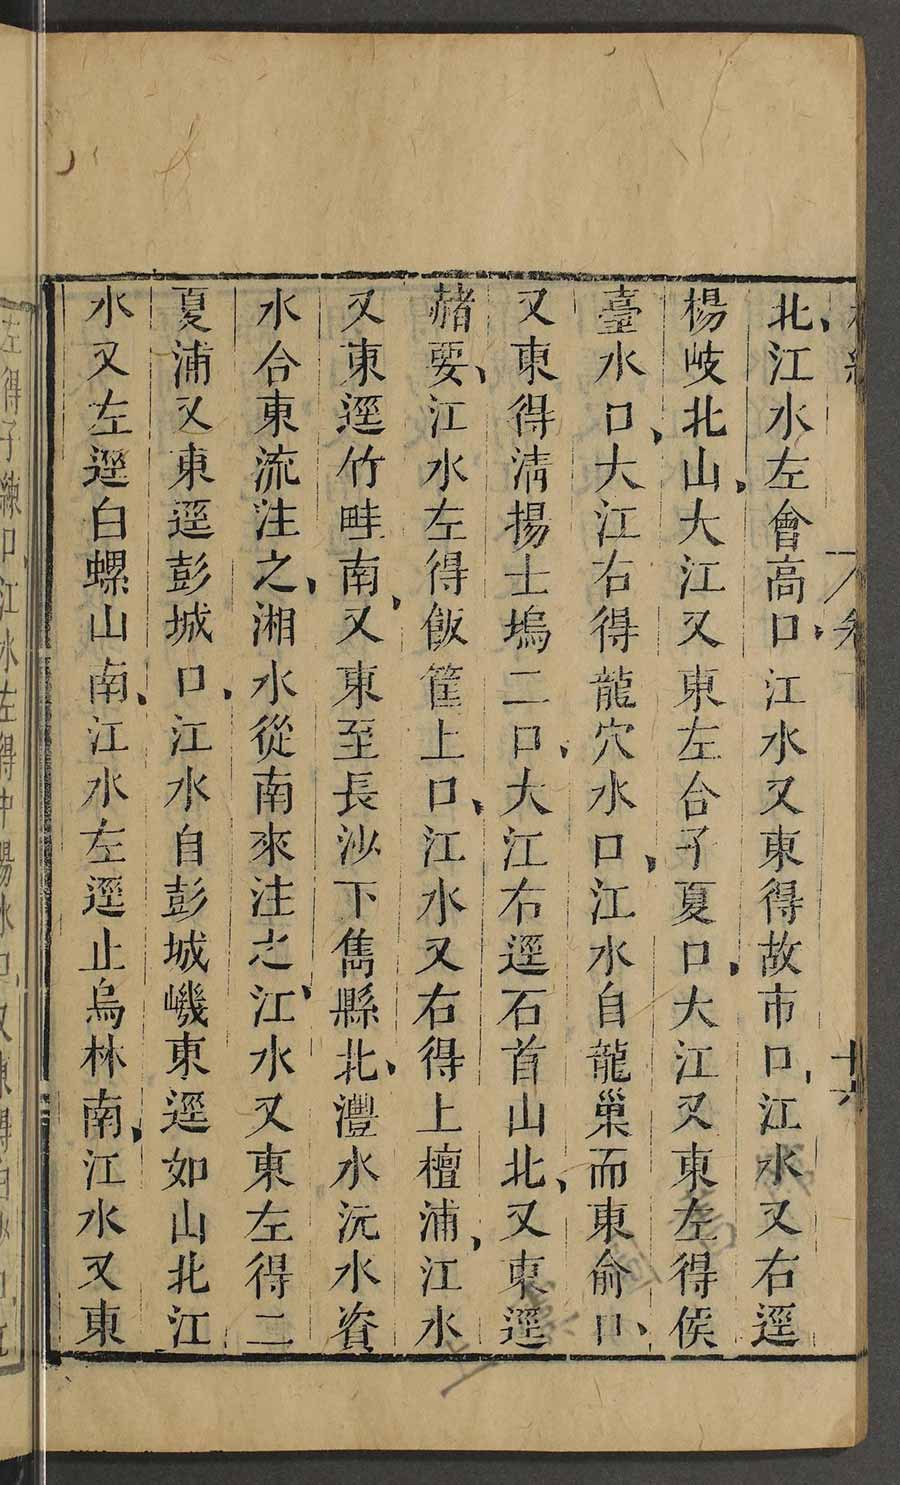 北江水左會高口江水又東得故市口江水又右逕
楊岐北山大江又東左合子夏口大江又東左得侯
臺水口大江右得龍穴水口江水自龍巢而東俞口
又東得清揚士塢二口大江右逕石首山北又東逕
赭要江水左得飯筐上口江水又右得上檀浦江水
又東逕竹畦南又東至長沙下雋縣北澧水沅水資
水合東流注之湘水從南來注之江水又東左得二
夏浦又東逕彭城口江水自彭城嶬東逕如山北江
水又左逕白螺山南江水左逕止烏林南江水又東